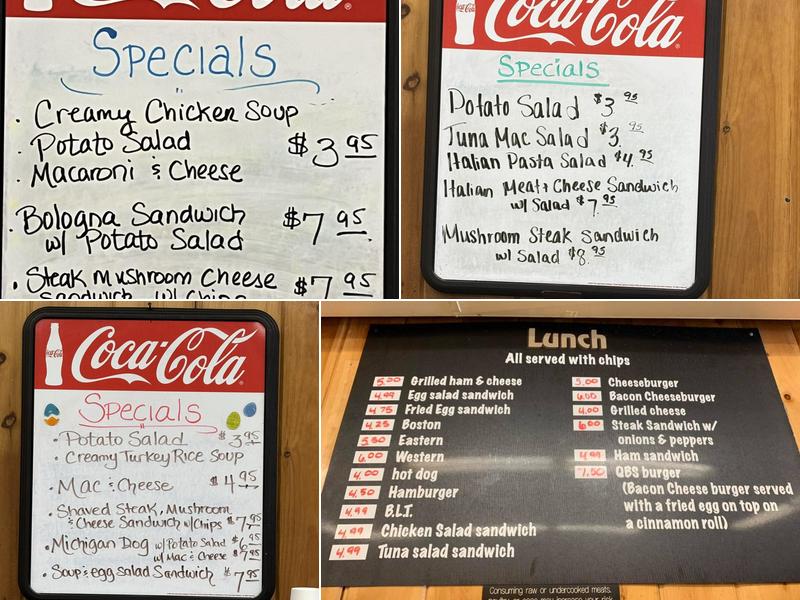 Coca-Cola
Specials
. Creamy Chicken Soup
. Potato Salad $3 95
. Macaroni & Cheese
. Bologna Sandwich $7 95
w/ Potato Salad
. Steak Mushroom Cheese $7 95
sandwich w/ Chips
Coca-Cola
Specials
Potato Salad $3 95
Tuna Mac Salad $3. 95
Italian Pasta Salad $4. 95
Italian Meat + Cheese Sandwich
w/ Salad $7. 95
Mushroom Steak Sandwich
w/ Salad $8. 95
Coca-Cola
Specials
. Potato Salad $3 95
. Creamy Turkey Rice Soup
. Mac & Cheese $4 95
. Shaved Steak, Mushroom
& Cheese Sandwich w/Chips $7 95
. Michigan Dog w/ Potato Salad $6 95
w/ Mac & Cheese $7 95
. Soup & egg salad Sandwich $7 95
Lunch
All served with chips
5.00 Grilled ham & cheese
4.99 Egg salad sandwich
4.75 Fried Egg sandwich
4.25 Boston
5.50 Eastern
6.00 Western
4.00 hot dog
4.50 Hamburger
4.99 B.L.T.
4.99 Chicken Salad sandwich
4.99 Tuna salad sandwich
5.00 Cheeseburger
6.00 Bacon Cheeseburger
4.00 Grilled cheese
6.00 Steak Sandwich w/
onions & peppers
4.99 Ham sandwich
7.50 QBS burger
(Bacon Cheese burger served
with a fried egg on top on
a cinnamon roll)
Consuming raw or undercooked meats,